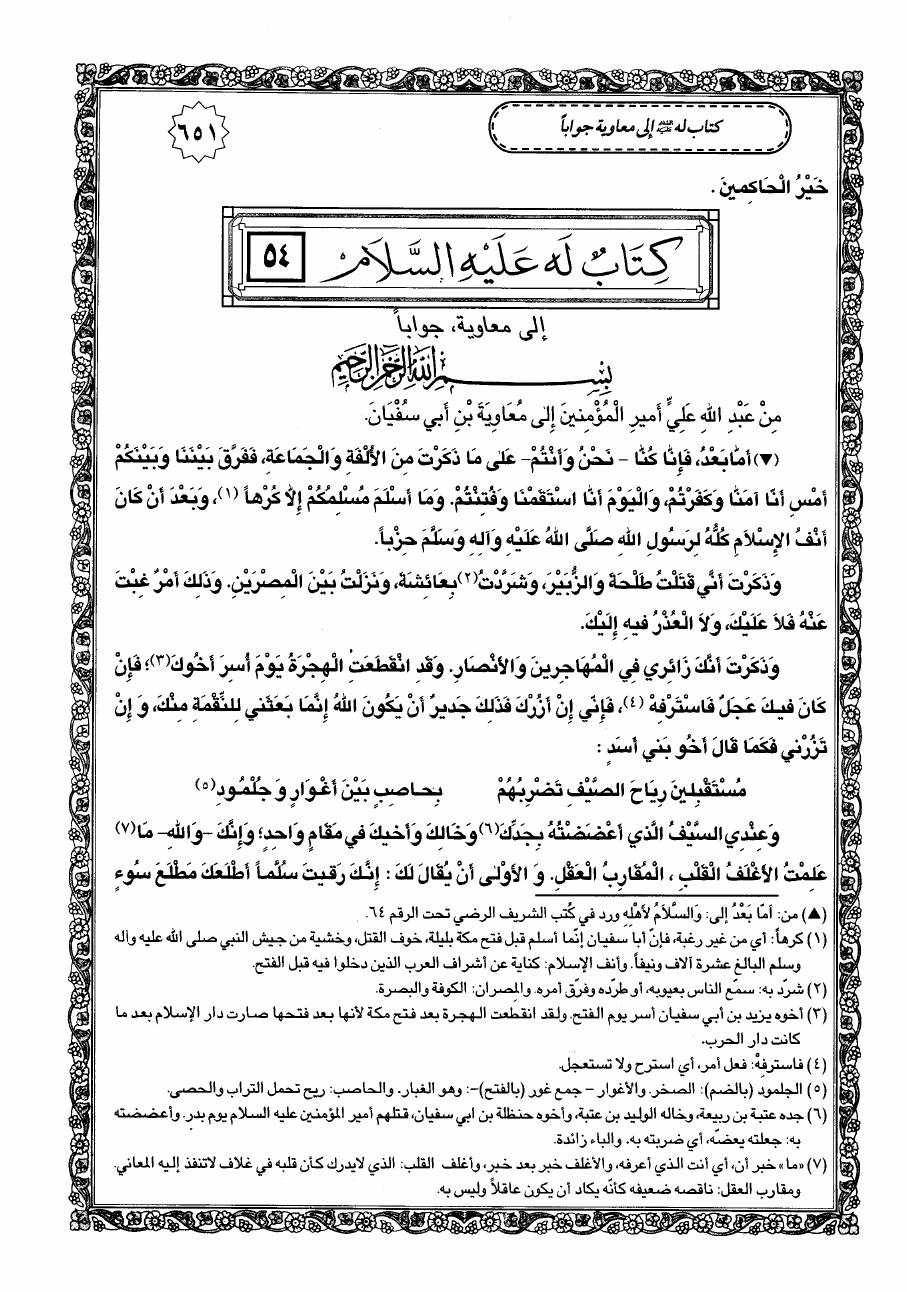 كتاب له عليه السلام إلى معاوية جواباً
٦٥١
خَيْرُ الْحَاكِمينَ .
كِتَابٌ لَه عَلَيْهِ السَّلَام
٥٤
إلى معاوية، جواباً
بِسْمِ اللهِ الرَّحْمٰنِ الرَّحِيمِ
مِنْ عَبْدِ اللهِ عَلِيٍّ أَميرِ الْمُؤْمِنينَ إِلى مُعَاوِيَةَ بْنِ أَبي سُفْيَانَ.
(▼) أَمَّا بَعْدُ، فَإِنَّا كُنَّا - نَحْنُ وَأَنْتُمْ- عَلى مَا ذَكَرْتَ مِنَ الأُلْفَةِ وَالْجَمَاعَةِ، فَفَرَّقَ بَيْنَنَا وَبَيْنَكُمْ
أَمْسِ أَنَّا آمَنَّا وَكَفَرْتُمْ، وَالْيَوْمَ أَنَّا اسْتَقَمْنَا وَفُتِنْتُمْ. وَمَا أَسْلَمَ مُسْلِمُكُمْ إِلاَّ كُرْهاً (١)، وَبَعْدَ أَنْ كَانَ
أَنْفُ الإِسْلاَمِ كُلُّهُ لِرَسُولِ اللهِ صَلَّى اللهُ عَلَيْهِ وَآلِهِ وَسَلَّمَ حِزْباً.
وَذَكَرْتَ أَنّي قَتَلْتُ طَلْحَةَ وَالزُّبَيْرَ، وَشَرَّدْتُ (٢) بِعَائِشَةَ، وَنَزَلْتُ بَيْنَ الْمِصْرَيْنِ. وَذلِكَ أَمْرٌ غِبْتَ
عَنْهُ فَلاَ عَلَيْكَ، وَلاَ الْعُذْرُ فيهِ إِلَيْكَ.
وَذَكَرْتَ أَنَّكَ زَائِري فِي الْمُهَاجِرينَ وَالأَنْصَارِ. وَقَدِ انْقَطَعَتُ الْهِجْرَةُ يَوْمَ أُسِرَ أَخُوكَ (٣)؛ فَإِنْ
كَانَ فيكَ عَجَلٌ فَاسْتَرْفِهْ (٤)، فَإِنّي إِنْ أَزُرْكَ فَذلِكَ جَديرٌ أَنْ يَكُونَ اللهُ إِنَّمَا بَعَثَني لِلنِّقْمَةِ مِنْكَ، وَ إِنْ
تَزُرْني فَكَمَا قَالَ أَخُو بَني أَسَدٍ :
مُسْتَقْبِلينَ رِيَاحَ الصَّيْفِ تَضْرِبُهُمْ بِحَاصِبٍ بَيْنَ أَغْوَارٍ وَ جُلْمُودِ (٥)
وَعِنْدِي السَّيْفُ الَّذي أَعْضَضْتُهُ بِجَدِّكَ (٦) وَخَالِكَ وَأَخيكَ في مَقَامٍ وَاحِدٍ؛ وَإِنَّكَ -وَاللهِ- مَا (٧)
عَلِمْتُ الأَغْلَفُ الْقَلْبِ ، الْمُقَارِبُ الْعَقْلِ. وَ الأَوْلى أَنْ يُقَالَ لَكَ : إِنَّكَ رَقيتَ سُلَّماً أَطْلَعَكَ مَطْلَعَ سُوءٍ
(▲) من: أَمَّا بَعْدُ إلى: وَالسَّلَامُ لأَهْلِهِ ورد في كُتب الشريف الرضي تحت الرقم ٦٤.
(١) كرهاً: أي من غير رغبة، فإنّ أبا سفيان إنّما أسلم قبل فتح مكة بليلة، خوف القتل، وخشية من جيش النبي صلى الله عليه وآله
وسلم البالغ عشرة آلاف ونيفاً. وأنف الإسلام: كناية عن أشراف العرب الذين دخلوا فيه قبل الفتح.
(٢) شرّد به: سمّع الناس بعيوبه، أو طرّده وفرّق أمره. والمصران: الكوفة والبصرة.
(٣) أخوه يزيد بن أبي سفيان أسر يوم الفتح. ولقد انقطعت الهجرة بعد فتح مكة لأنها بعد فتحها صارت دار الإسلام بعد ما
كانت دار الحرب.
(٤) فاسترفهْ: فعل أمر، أي استرح ولا تستعجل.
(٥) الجلمود (بالضم): الصخر. والأغوار - جمع غور (بالفتح)-: وهو الغبار. والحاصب: ريح تحمل التراب والحصى.
(٦) جده عتبة بن ربيعة، وخاله الوليد بن عتبة، وأخوه حنظلة بن ابي سفيان، قتلهم أمير المؤمنين عليه السلام يوم بدر. وأعضضته
به: جعلته يعضّه، أي ضربته به. والباء زائدة.
(٧) «ما» خبر أن، أي أنت الذي أعرفه، والأغلف خبر بعد خبر، وأغلف القلب: الذي لايدرك كأن قلبه في غلاف لاتنفذ إليه المعاني.
ومقارب العقل: ناقصه ضعيفه كأنّه يكاد أن يكون عاقلاً وليس به.